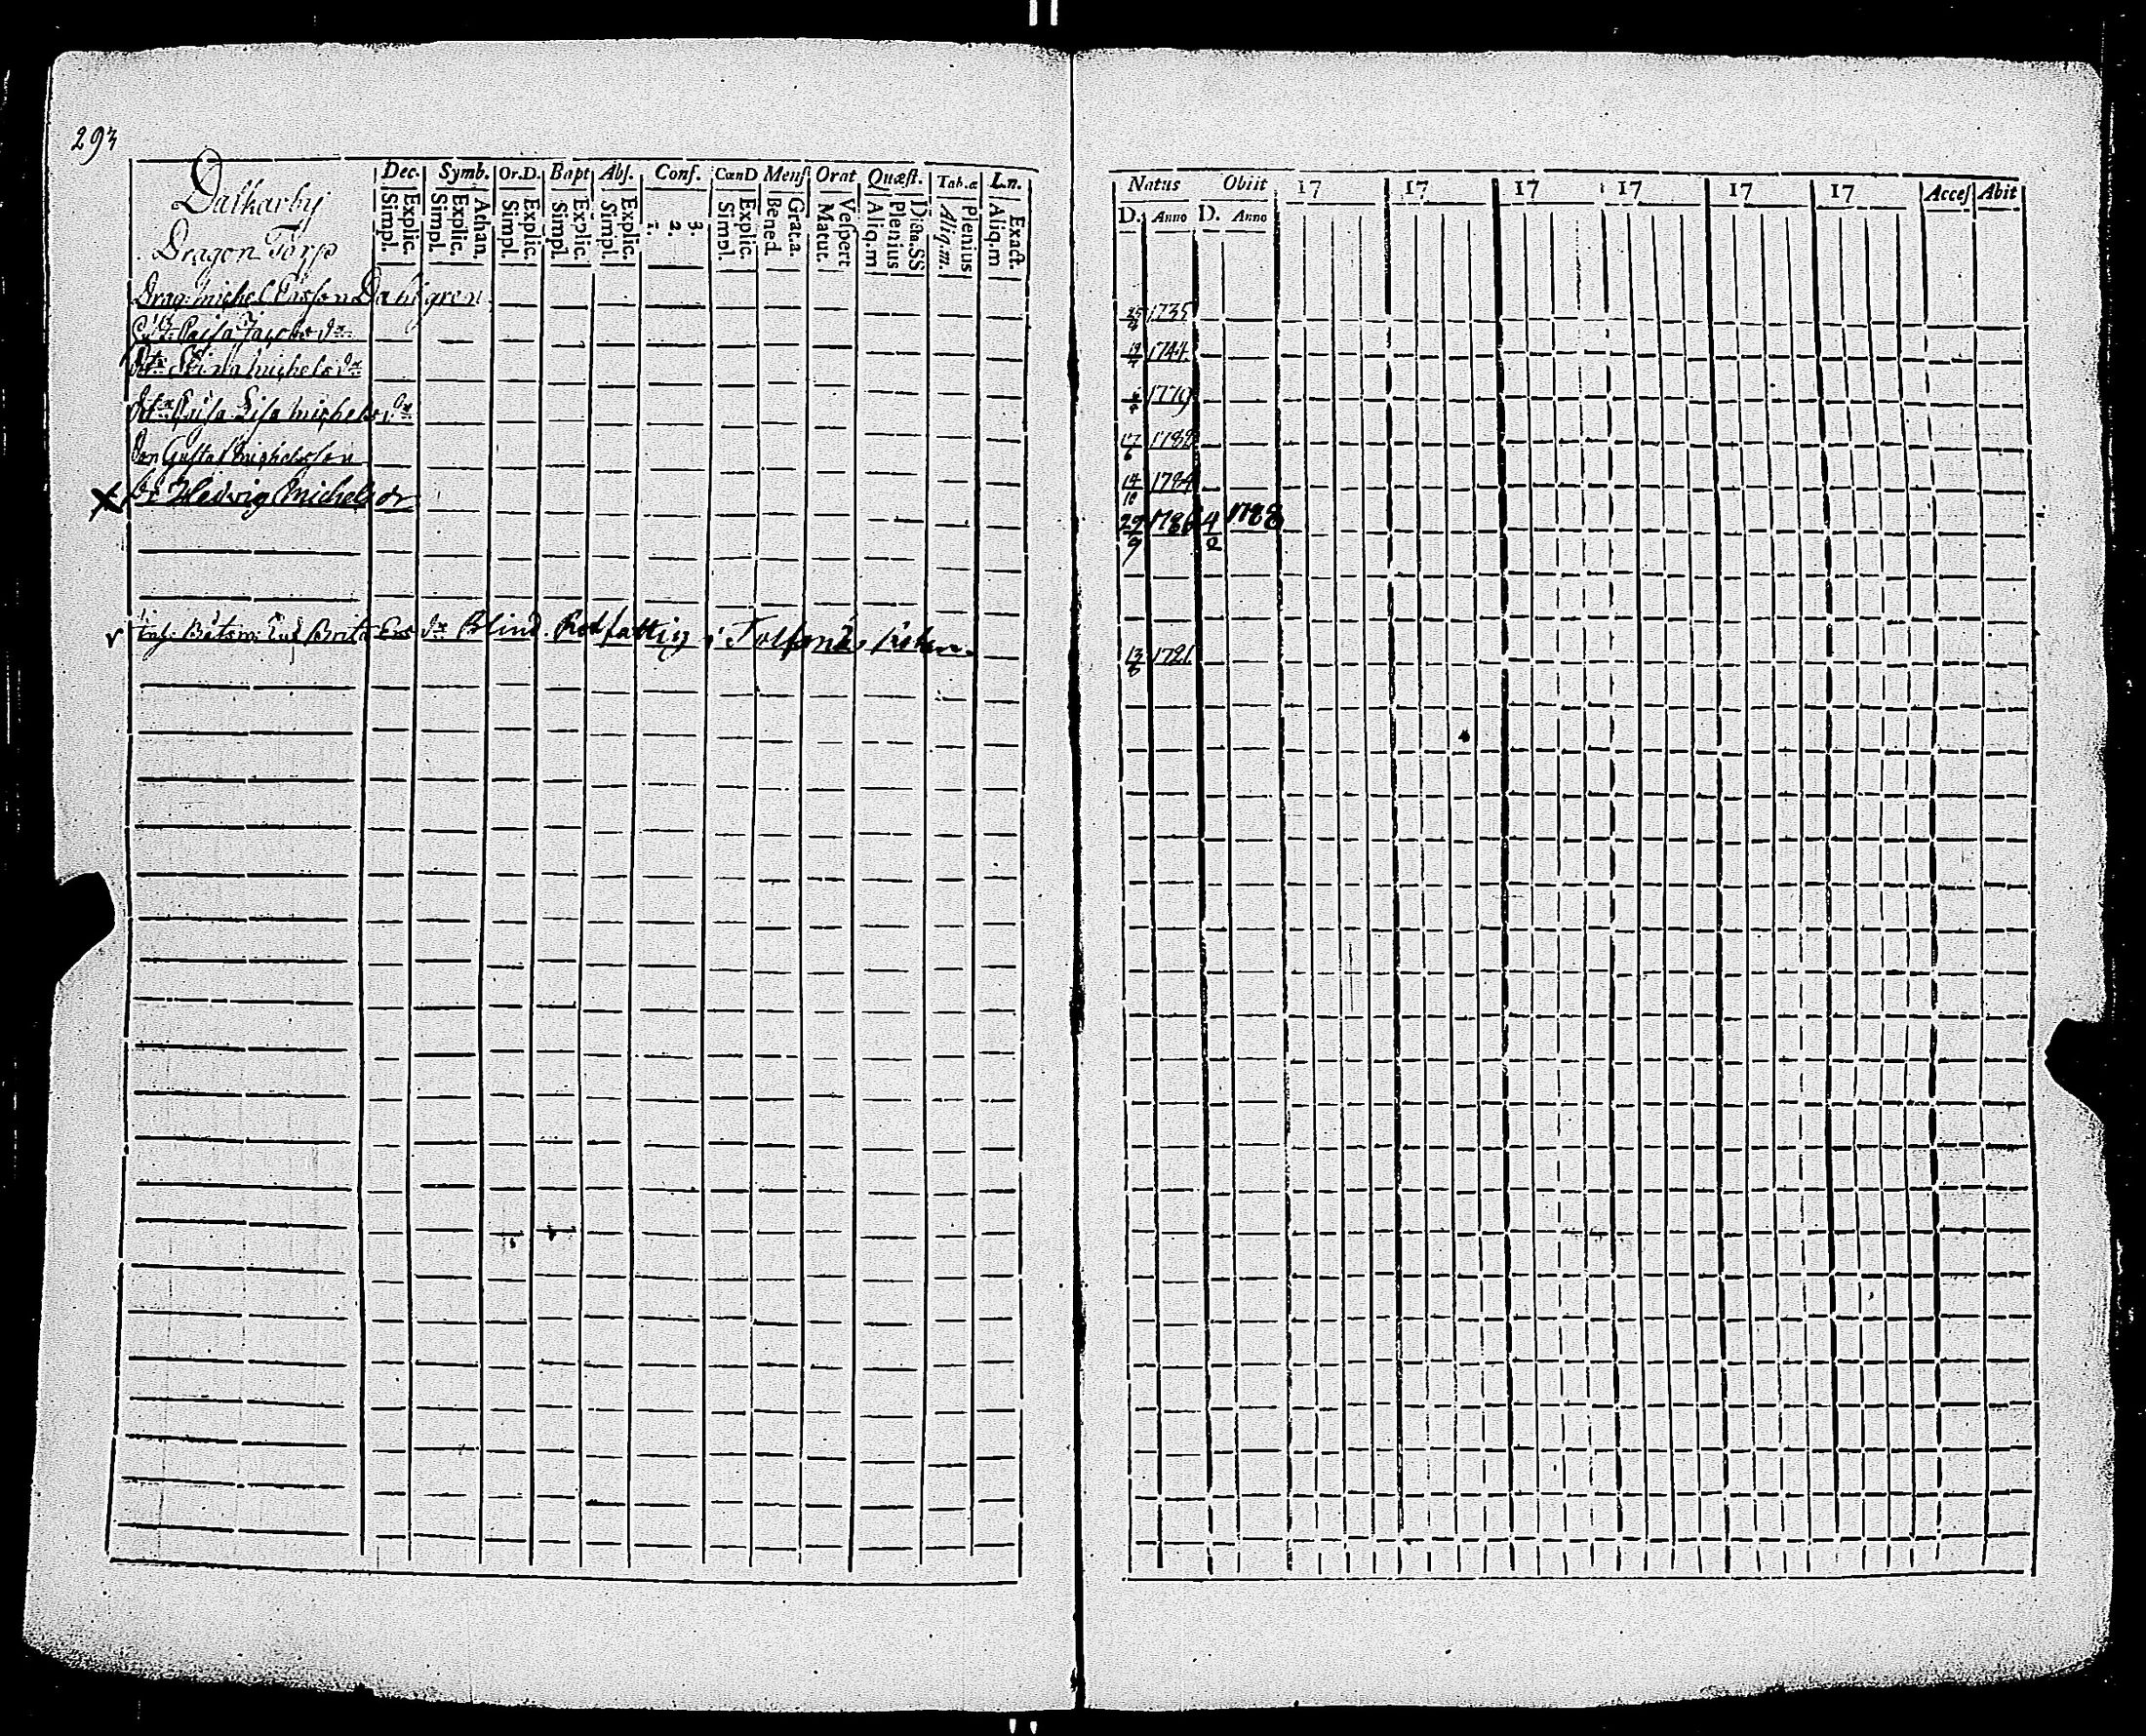 293
Dalkarby
Dragon Torp
Dec. Symb. Or.D. Bapt Abs. Conf. CœnD Mens Orat Quæst. Tab.œ Ln.
Simpl. Explic. Simpl. Explic. Athan. Simpl. Explic. Simpl. Explic. Simpl Explic. 1. 2. 3. Simpl. Explic. Bened Grat.a Matut. Vespert Aliq.m Plenius Dicta.SS Aliq.m. Plenius Aliq.m Exact.
Drag. Michel Ersson Dahlgren
Hust. Caisa Jacobs dr
Dtr Stina Michels dr
Dtr Caisa Lisa Michels dr
Son Gustaf Michelsson
Dr Hedvig Michelsdr
Brita Ers dr Blind Rotfattig i
Natus Obiit 17 17 17 17 17 17 Acces Abit
D. Anno D. Anno
1735
1744
1779
17/6 1782
14/10 1784
29/9 1786 4/2 1788
13/8 1721